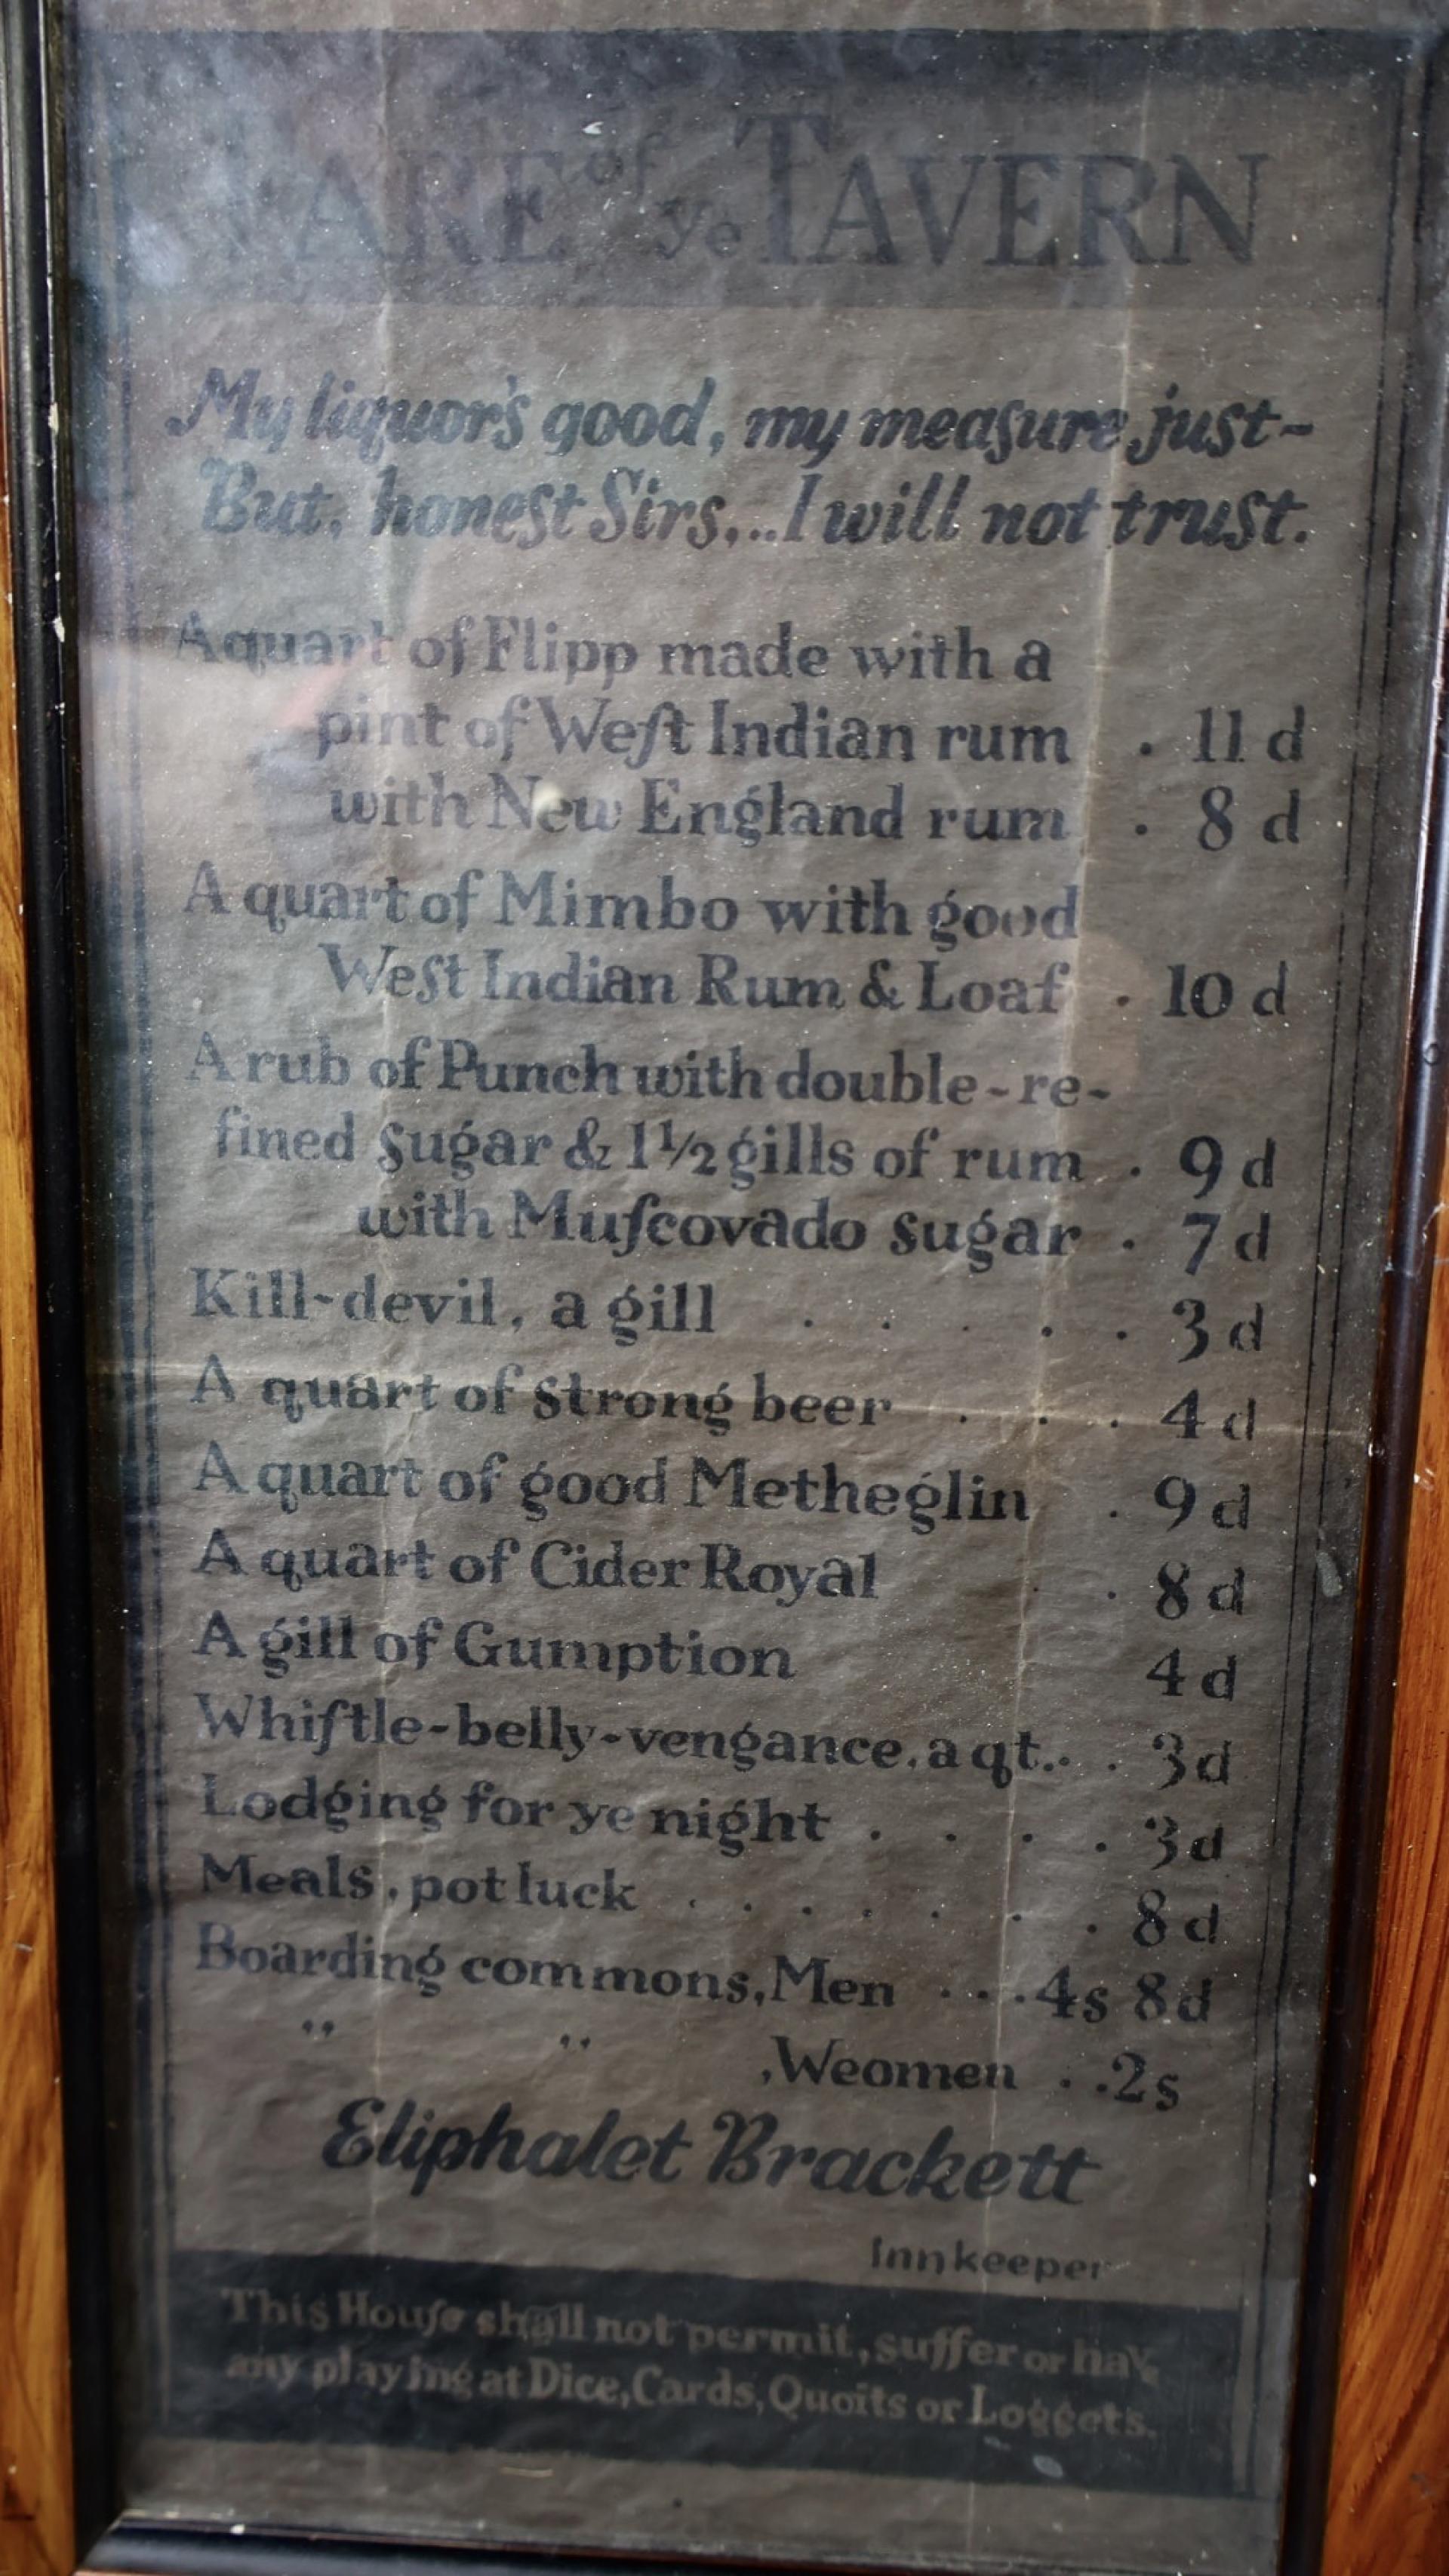 FARE of ye TAVERN
My liquor's good, my meaſure just~
But, honest Sirs,...I will not trust.
A quart of Flipp made with a
pint of Weſt Indian rum . 11 d
with New England rum . 8 d
A quart of Mimbo with good
West Indian Rum & Loaf . 10 d
A rub of Punch with double-re-
fined sugar & 1 1/2 gills of rum . 9 d
with Muſcovado sugar . 7 d
Kill-devil, a gill . . . . . 3 d
A quart of strong beer . . . 4 d
A quart of good Metheglin . 9 d
A quart of Cider Royal . . 8 d
A gill of Gumption 4 d
Whiſtle-belly-vengance, a qt. . . 3d
Lodging for ye night . . . . 3d
Meals, pot luck . . . . . . . 8 d
Boarding commons, Men . . . 4s 8d
" " , Weomen . . 2s
Eliphalet Brackett
Innkeeper
This Houſe shall not permit, suffer or hav
any playing at Dice, Cards, Quoits or Loggets.